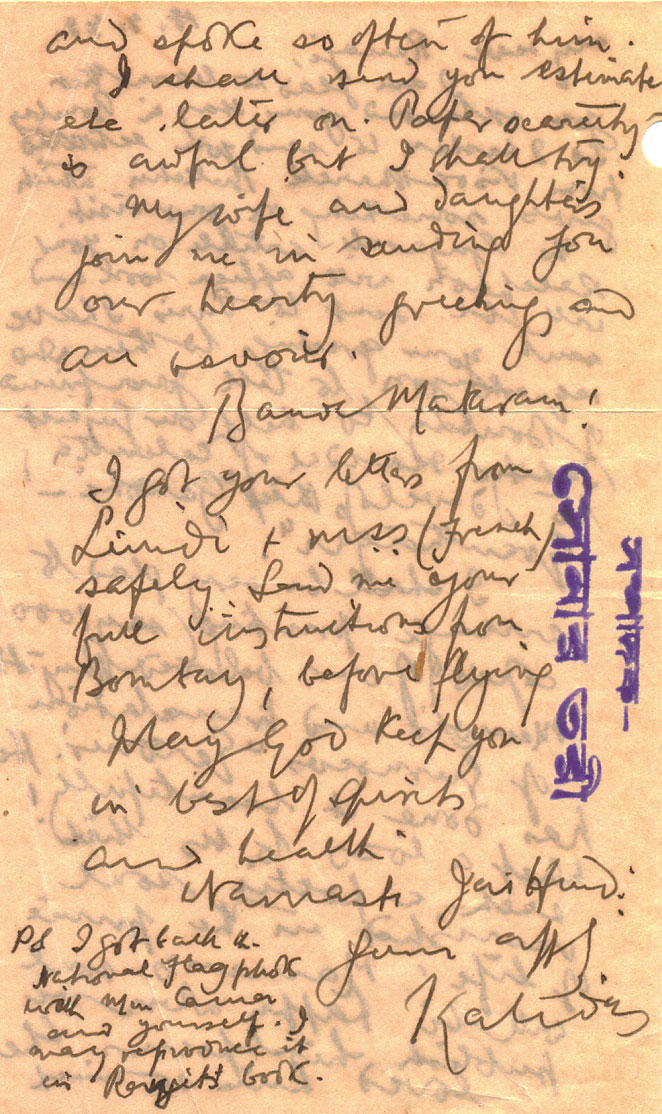 and spoke so often of him.
I shall send you estimate
etc. later on. Paper scarcity
is awful but I shall try.
My wife and daughters
join me in sending you
our hearty greetings and
au revoir.
Bande Mataram!
I got your letters from
+ mss (French)
safely Send me your
full instructions from
Bombay, before flying
May God keep you
in best of spirits
and health
Namaste Jai Hind!
Your aff
Kalidas
PS I got back the
National flag photo
with Mm Cama
and yourself. I
may reproduce it
in book.